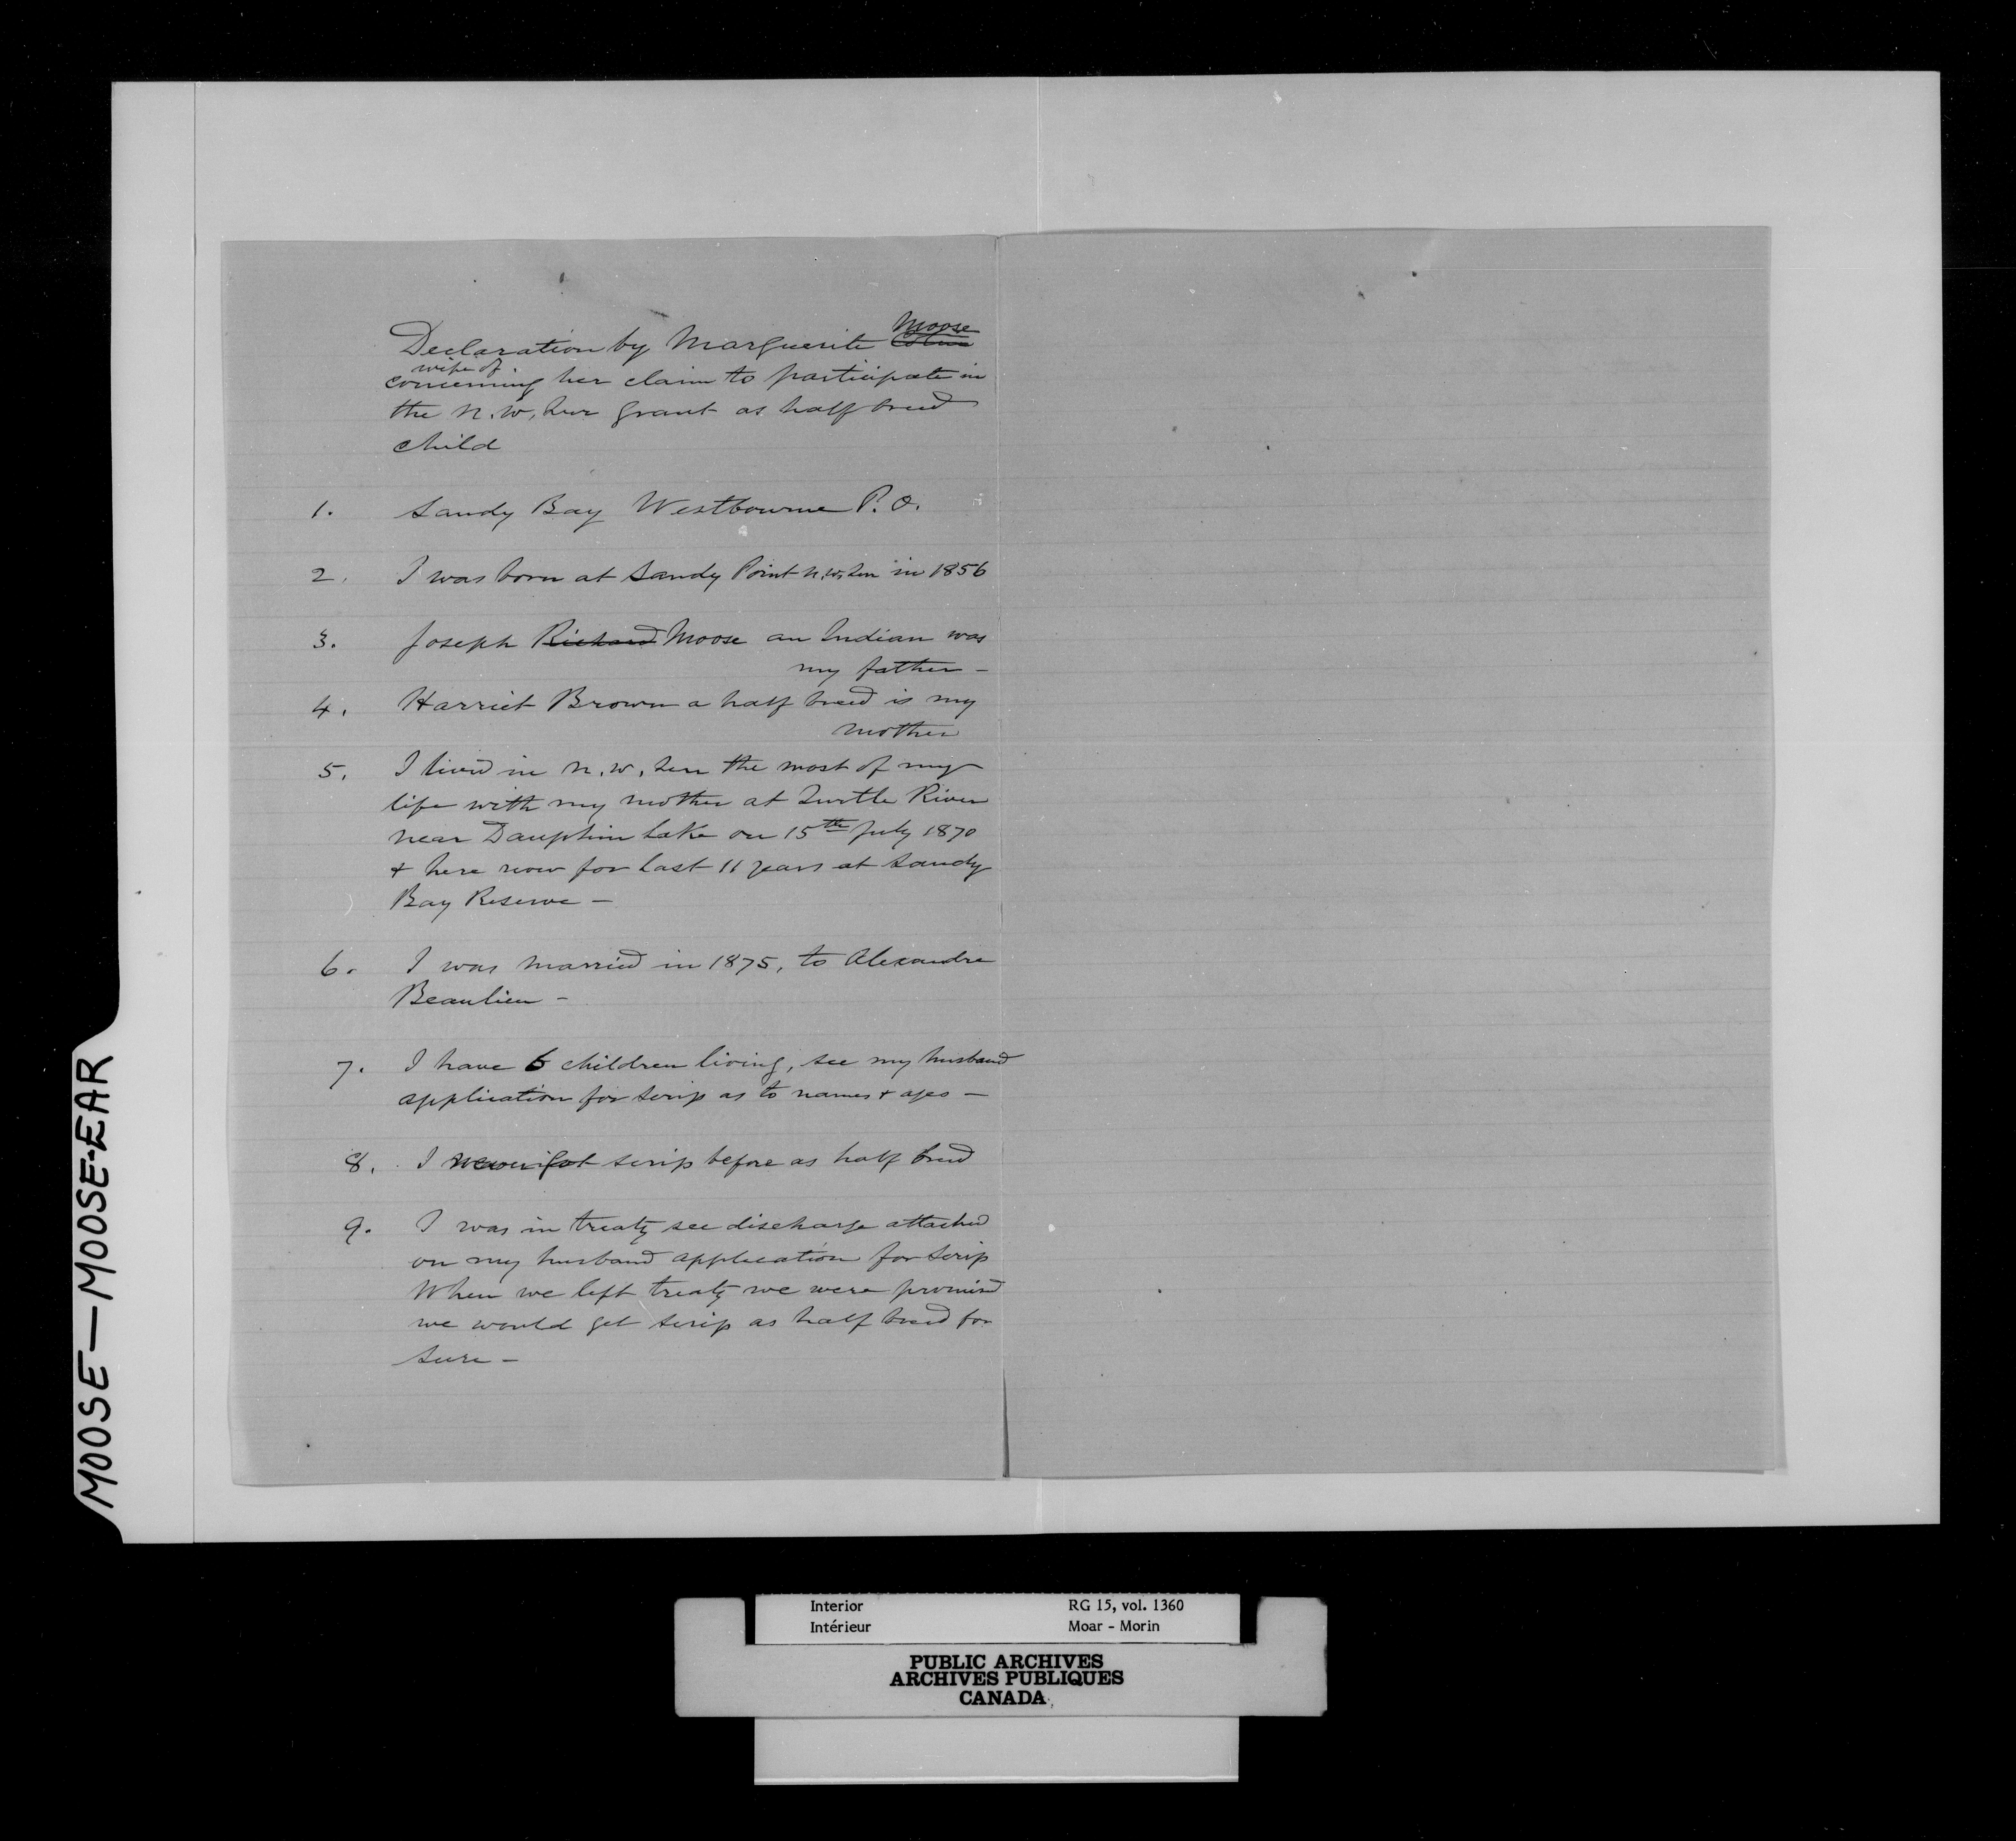 Moose
Declaration by Marguerite
wife of
concerning her claim to participate in
the N. W. Ter grant as half breed
child
1. Sandy Bay Westbourne P. O.
2. I was born at Sandy Point N. W. Ter in 1856
3. Joseph Richard Moose an Indian was
my father -
4. Harriet Brown a half breed is my
mother
5. I lived in N. W. Ter the most of my
life with my mother at Turtle River
near Dauphin Lake on 15th July 1870
& here now for last 11 years at Sandy
Bay Reserve -
6. I was married in 1875, to Alexandre
Beaulieu -
7. I have 6 children living, see my husband
application for scrip as to names & ages -
8. I never got scrip before as half breed
9. I was in treaty see discharge attached
on my husband application for scrip
When we left treaty we were promised
we would get scrip as half breed for
sure -
MOOSE — MOOSE-EAR
Interior RG 15, vol. 1360
Intérieur Moar - Morin
PUBLIC ARCHIVES
ARCHIVES PUBLIQUES
CANADA